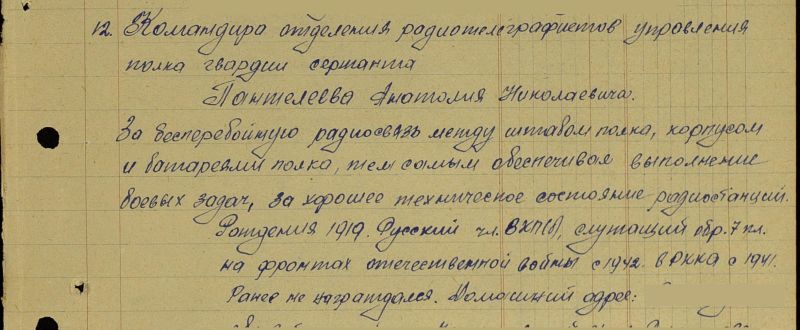 12. Командира отделения радиотелеграфистов управления
полка гвардии сержанта
Пантелеева Анатолия Николаевича.
За бесперебойную радиосвязь между штабом полка, корпусом
и батареями полка, тем самым обеспечивая выполнение
боевых задач, за хорошее техническое состояние радиостанций.
Рождения 1919. Русский чл. ВКП(б), служащий обр. 7 кл.
на фронтах отечественной войны с 1942. в РККА с 1941.
Ранее не награждался. Домашний адрес: